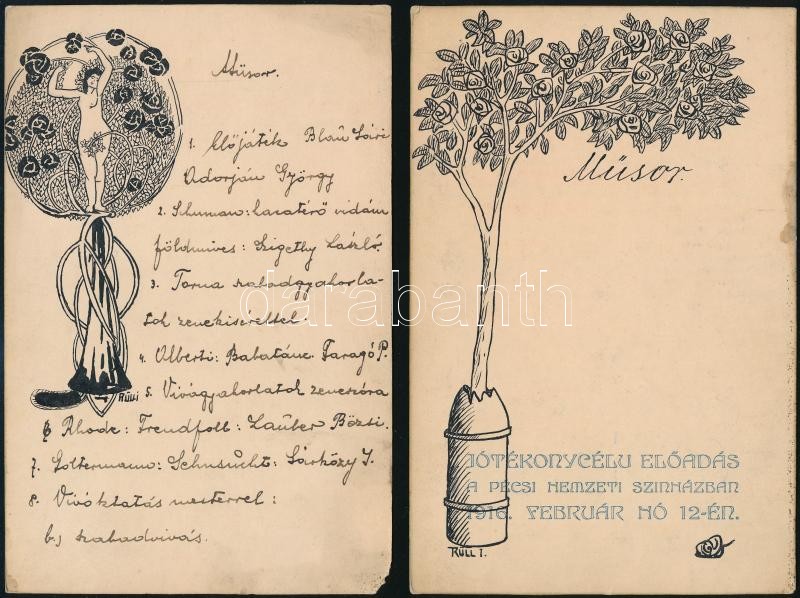 Műsor.
1. Előjáték Blau Sári
Adorján György
2. Schuman: hazatérő vidám
földmives: Szigethy László.
3. Torna szabadgyakorla-
tok zenekisérettel.
4. Alberti: Babatánc Faragó P.
5. Vivógyakorlatok zeneszóra
6 Rhode: Trendfoll: Lauber Bözsi.
7. Goltermann: Sehnsucht: Sárközy I.
8. Vivóktatás mesterrel:
b.) szabadvivás.
RÜLL I
Műsor.
JÓTÉKONYCÉLU ELŐADÁS
A PÉCSI NEMZETI SZINHÁZBAN
1916. FEBRUÁR HÓ 12-ÉN.
RÜLL I.
darabanth